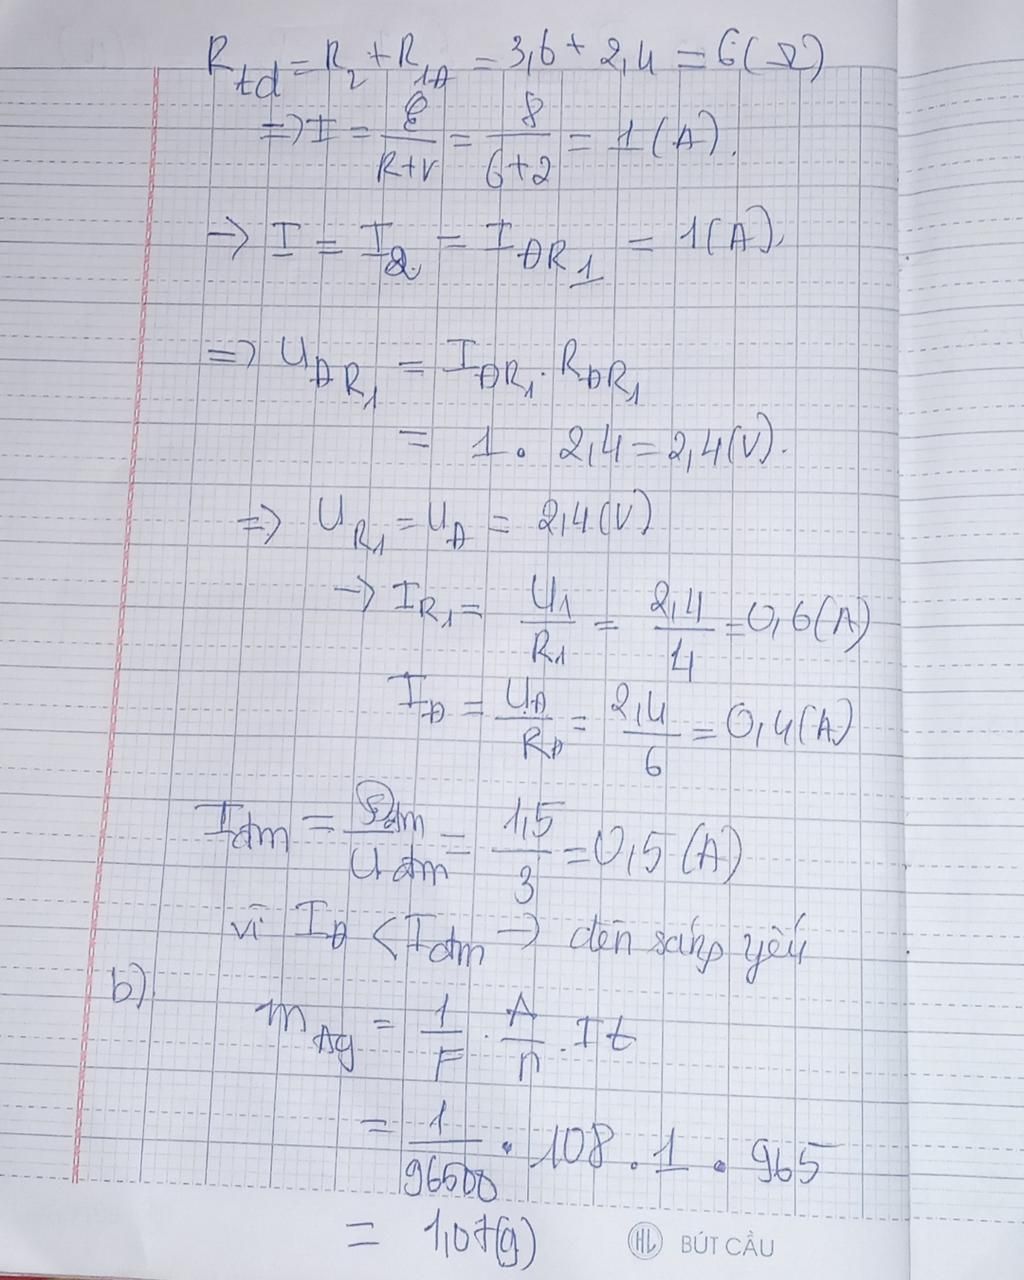 R_tđ = R_2 + R_1Đ = 3,6 + 2,4 = 6(Ω)
=> I = ξ/(R+r) = 8/(6+2) = 1(A).
-> I = I_2 = I_ĐR_1 = 1(A).
=> U_ĐR_1 = I_ĐR_1 . R_ĐR_1
= 1 . 2,4 = 2,4(V).
=> U_R_1 = U_Đ = 2,4(V)
-> I_R_1 = U_1/R_1 = 2,4/4 = 0,6(A)
I_Đ = U_Đ/R_Đ = 2,4/6 = 0,4(A)
I_đm = P_đm/U_đm = 1,5/3 = 0,5(A)
vì I_Đ < I_đm -> đèn sáng yếu
b)
m_Ag = 1/F . A/n . It
= 1/96500 . 108 . 1 . 965
= 1,07(g)
HL BÚT CẦU